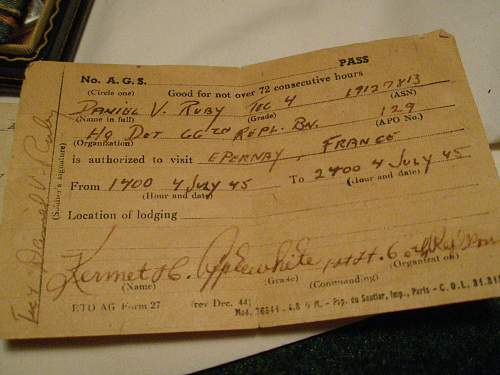 PASS
No. A.G.S.
(Circle one) Good for not over 72 consecutive hours
DANIEL V. RUBY TEC 4 19127813
(Name in full) (Grade) (ASN)
HQ DET 66TH REPL. BN. 129
(Organization) (APO No.)
is authorized to visit EPERNAY, FRANCE
From 1400 4 JULY 45 To 2400 4 JULY 45
(Hour and date) (Hour and date)
Location of lodging
Kermet C. Applewhite 1st Lt.
(Name) (Grade) (Commanding) (Organization)
ETO AG Form 27 (rev Dec. 44)
Pap. du Sentier, Imp., Paris - C.O.L.
Daniel V. Ruby
(Soldier's signature)